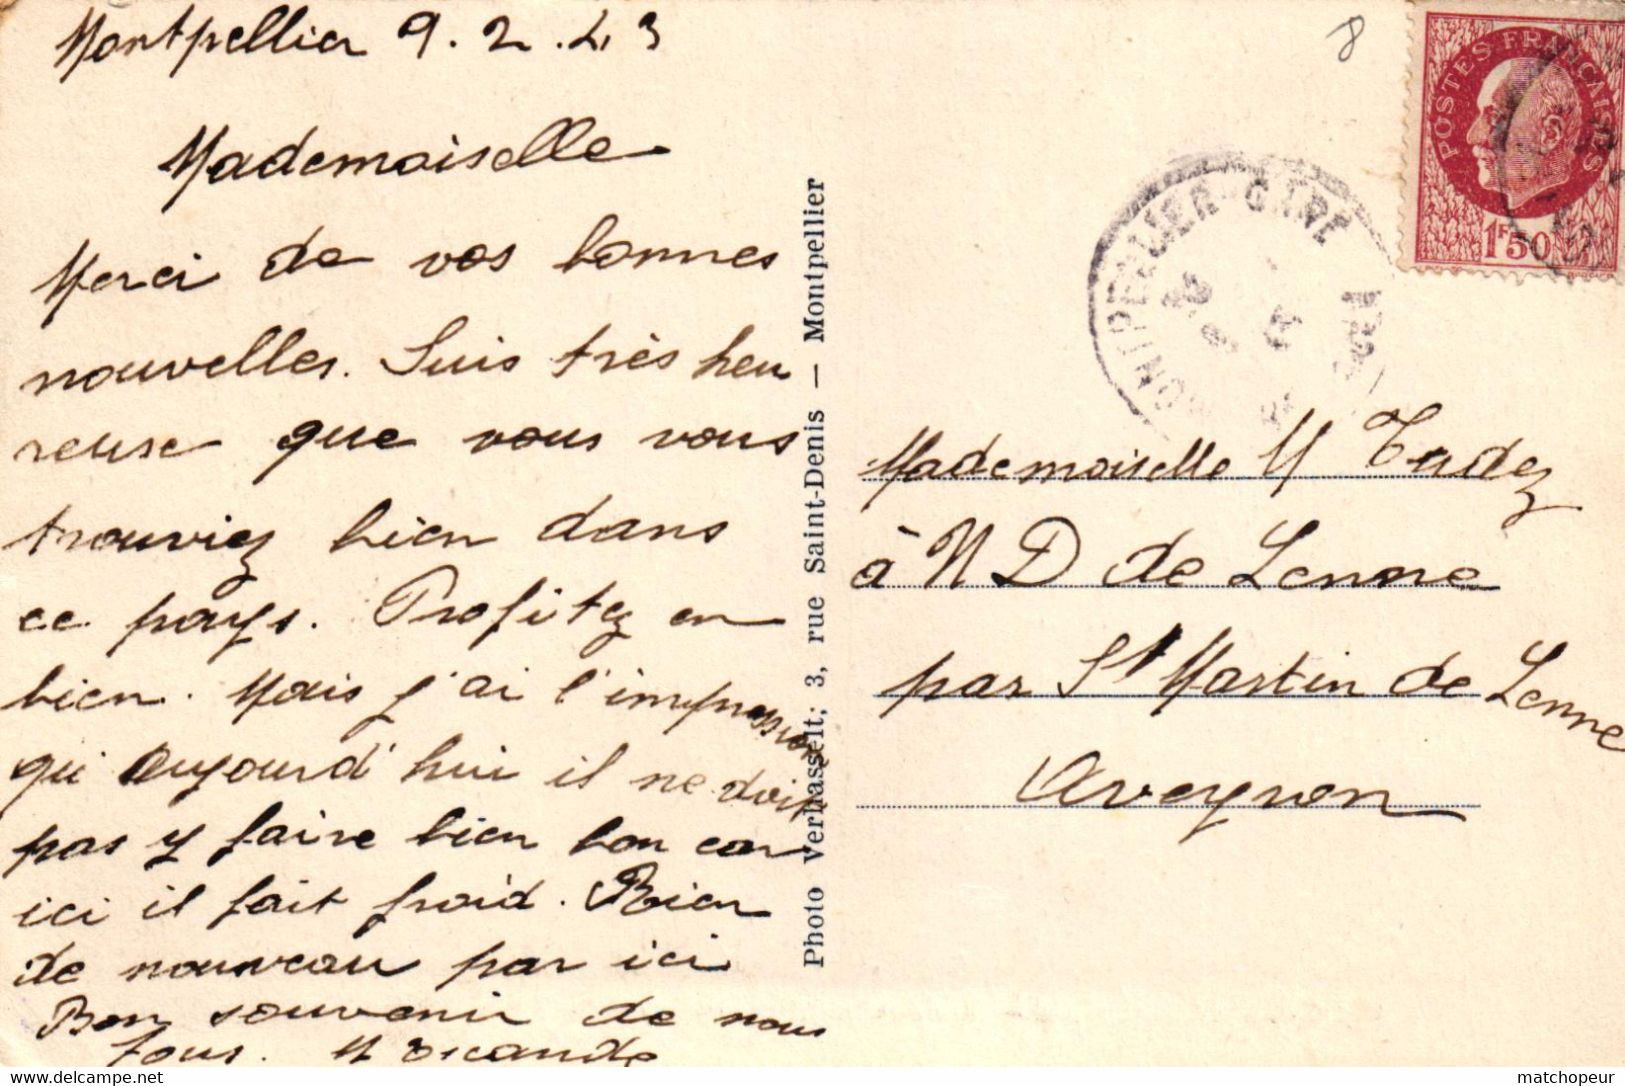 Montpellier 9.2.43
Mademoiselle
Merci de vos bonnes
nouvelles. Suis très heu
reuse que vous vous
trouviez bien dans
ce pays. Profitez en
bien. Mais j'ai l'impression
qu'aujourd'hui il ne doit
pas y faire bien bon car
ici il fait froid. Rien
de nouveau par ici
Bon souvenir de nous
tous. M Escande
Photo Verhasselt; 3, rue Saint-Denis — Montpellier
8
POSTES FRANÇAISES
1F50
MONTPELLIER GARE
Mademoiselle M Tudez
à N D de Lenne
par St Martin de Lenne
Aveyron
www.delcampe.net
matchopeur